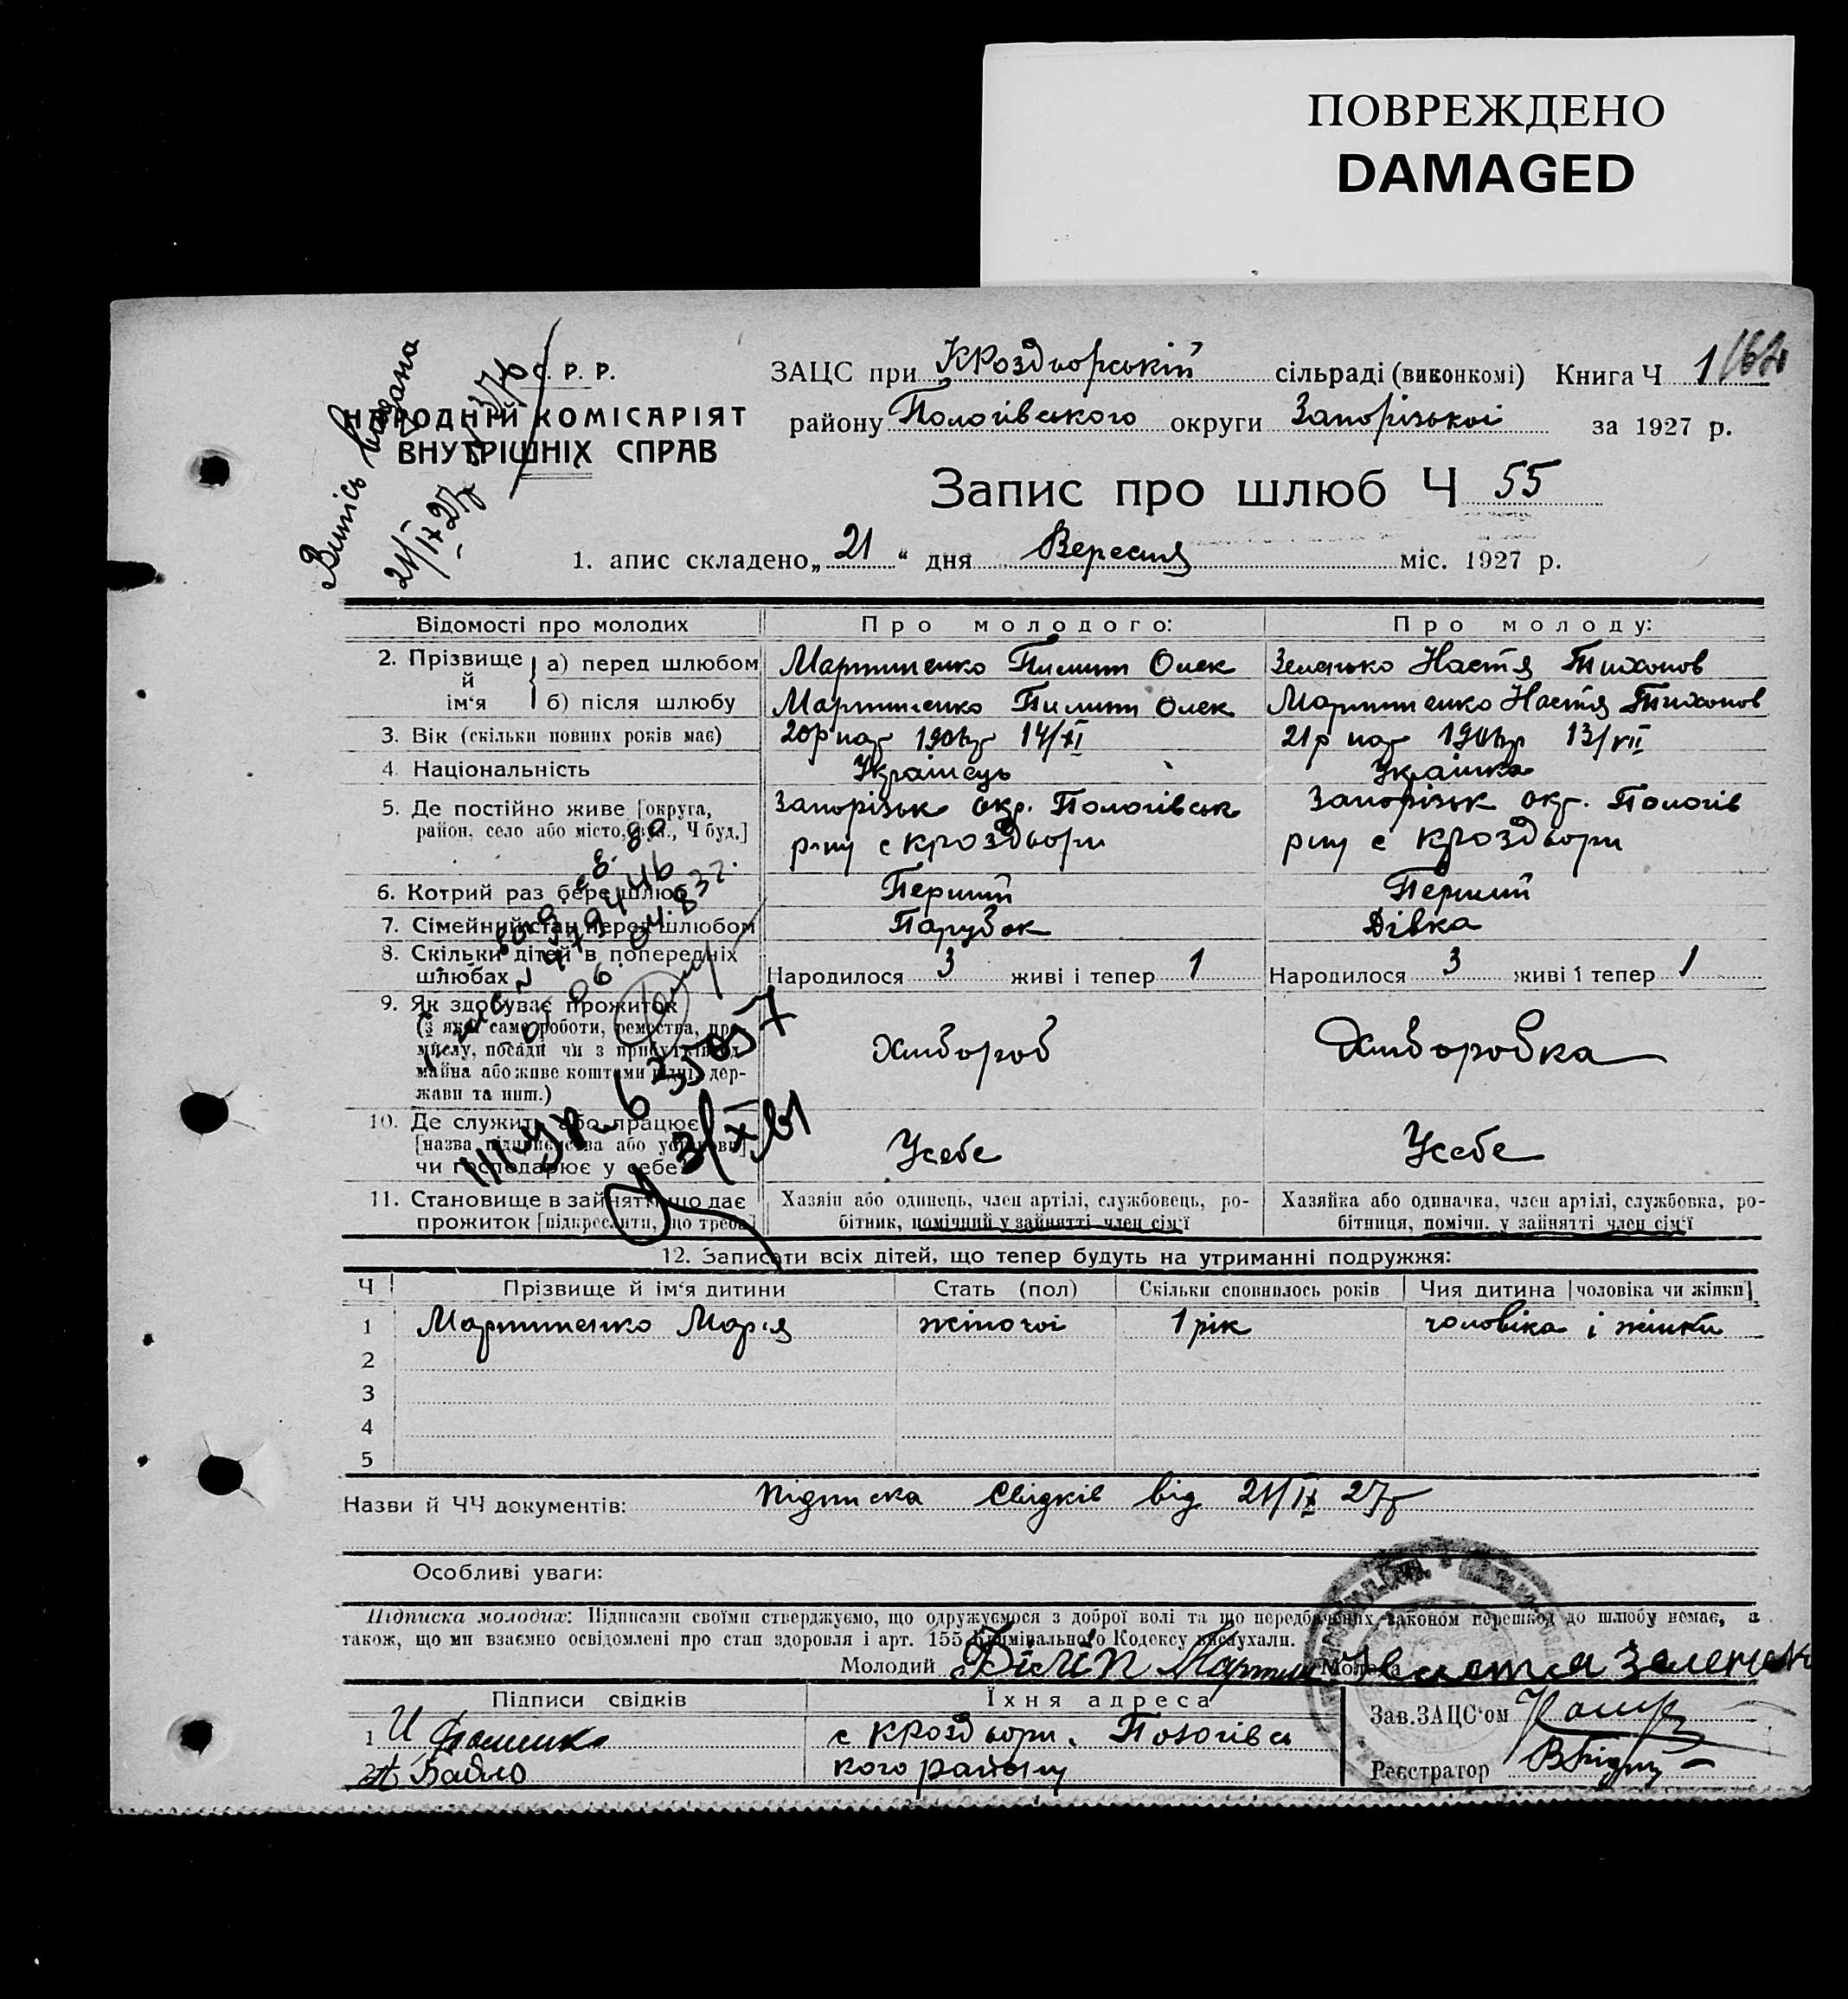 ПОВРЕЖДЕНО
DAMAGED
Р. Р.
НАРОДНІЙ КОМІСАРІЯТ
ВНУТРІШНІХ СПРАВ
Випісь видана
21/IX 27р
ЗАЦС при КРоздворській сільраді (виконкомі) Книга Ч 1
162
району Пологівського округи Запорізької за 1927 р.
Запис про шлюб Ч 55
1. апис складено „ 21 “ дня Вересня міс. 1927 р.
Відомості про молодих Про молодого: Про молоду:
2. Прізвище й ім‘я а) перед шлюбом Мартиненко Пилип Олек Зеленько Настя Тихонов
б) після шлюбу Мартиненко Пилип Олек Мартиненко Настя Тихонов
3. Вік (скільки повних років має) 20р 14/XI 21р 13/VII
4. Національність Українець Українка
5. Де постійно живе [округа, район, село або місто, Ч буд.] Запорізьк окр. Пологівськ Запорізьк окр. Пологів
р-ну с КРоздвори р-ну с КРоздвори
6. Котрий раз бере шлюб Перший Перший
7. Сімейний стан перед шлюбом Парубок Дівка
8. Скільки дітей в попередніх шлюбах Народилося 3 живі і тепер 1 Народилося 3 живі і тепер 1
9. Як здобуває прожиток
(з якої саме роботи, ремества, про-
мислу, посади чи з прибутків од
майна або живе коштами рідні, дер-
жави та инш.) Хлібороб Хліборобка
10. Де служить або працює
[назва підприємства або установи]
чи господарює у себе? Усебе Усебе
11. Становище в зайнятті, що дає
прожиток [підкреслити, що треба]
Хазяїн або одинець, член артілі, службовець, ро-
бітник, помічний у зайнятті член сім‘ї
Хазяйка або одиначка, член артілі, службовка, ро-
бітниця, помічн. у зайнятті член сім‘ї
12. Записати всіх дітей, що тепер будуть на утриманні подружжя:
Ч Прізвище й ім‘я дитини Стать (пол) Скільки сповнилось років Чия дитина [чоловіка чи жінки]
1 Мартиненко Марія жіночої 1 рік чоловіка і жінки
2
3
4
5
Назви й ЧЧ документів: Підписка свідків від 21/IX 27р
Особливі уваги:
Підписка молодих: Підписами своїми стверджуємо, що одружуємося з доброї волі та що передбачених законом перешкод до шлюбу немає, а
також, що ми взаємно освідомлені про стан здоровля і арт. 155 Кримінального Кодексу вислухали.
Молодий Філіп Мартин Молода Настя Зеленьк
Підписи свідків Їхня адреса Зав. ЗАЦС‘ом
1 И с КРоздвори. Пологівсь
2 Байло кого району Реєстратор